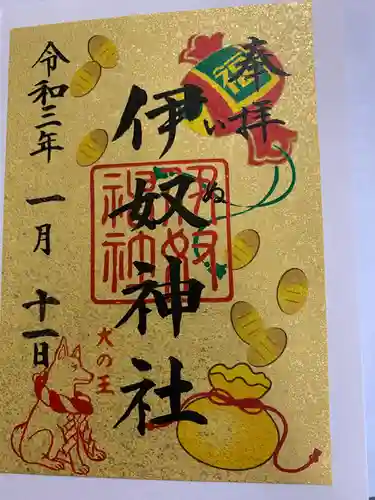 奉拝
伊奴神社
いぬ
伊奴
神社
福
令和三年 一月 十一日
犬の王